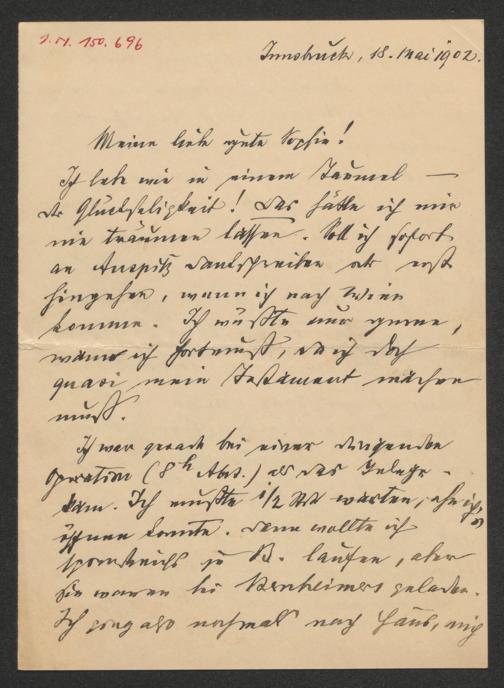 J. N. 150.696
Innsbruck, 18. Mai 1902.
Meine liebe gute Sophie!
Ich lebe wie in einem Taumel —
der Glückseligkeit! Das hätte ich mir
nie träumen lassen. Soll ich sofort
an Auspitz Dankschreiben oder erst
hingehen, wenn ich nach Wien
komme. Ich wüßte nur gerne,
wann ich fortmuß, da ich doch
quasi mein Testament machen
muß.
Ich war gerade bei einer dringenden
Operation (8h Abd.) als das Telegr-
kam. Ich mußte 1/2 Std warten, ehe ich's
öffnen konnte. Dann wollte ich
spornstreichs zu B. laufen, aber
sie waren bei geladen.
Ich ging also nochmals nach Haus, mich